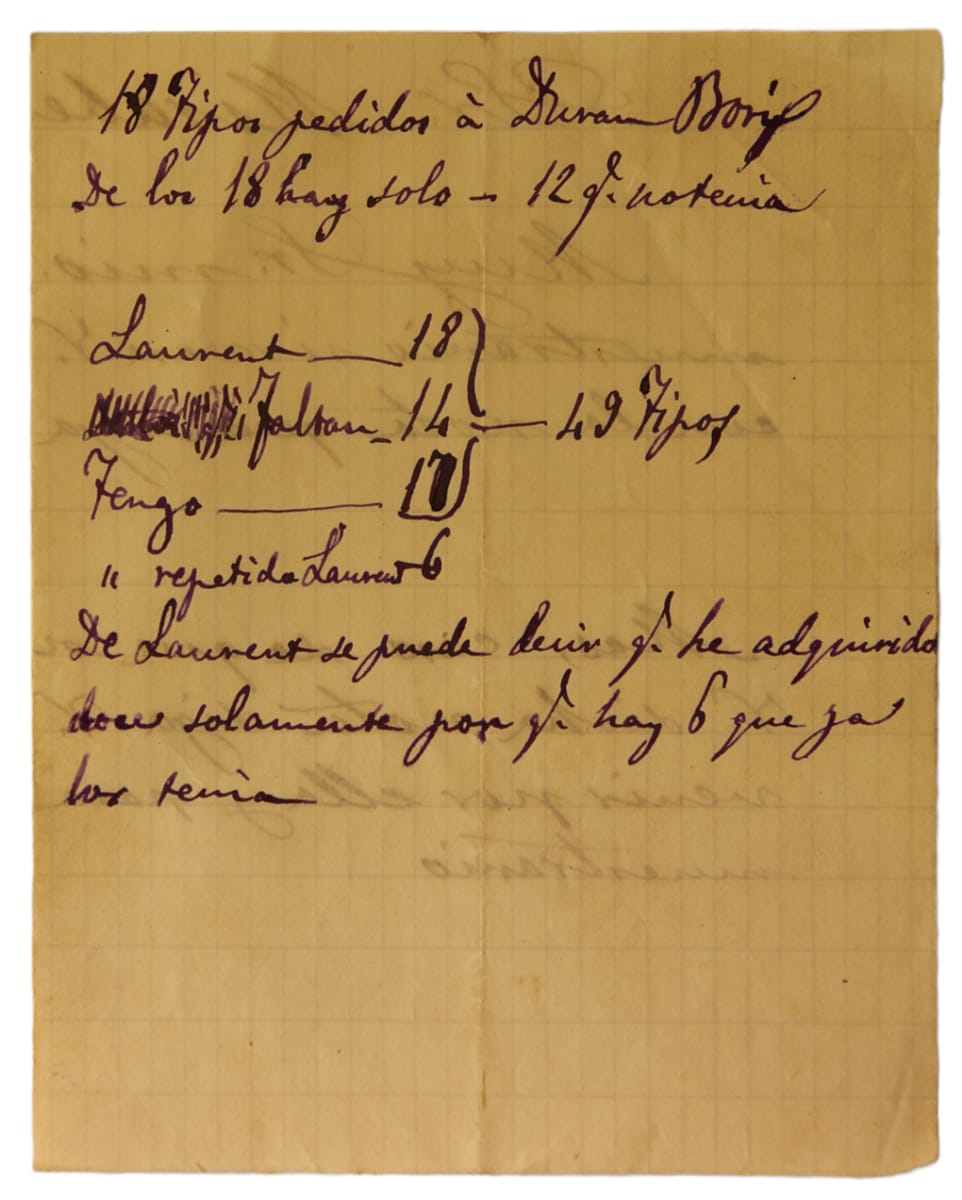 18 Tipos pedidos à Duran Bory
De los 18 hay solo - 12 q. no tenia
Laurent — 18
Faltan - 14 — 49 Tipos
Tengo — 17
" repetido Laurent 6
De Laurent se puede decir q. he adquirido
doce solamente por q. hay 6 que ya
los tenia